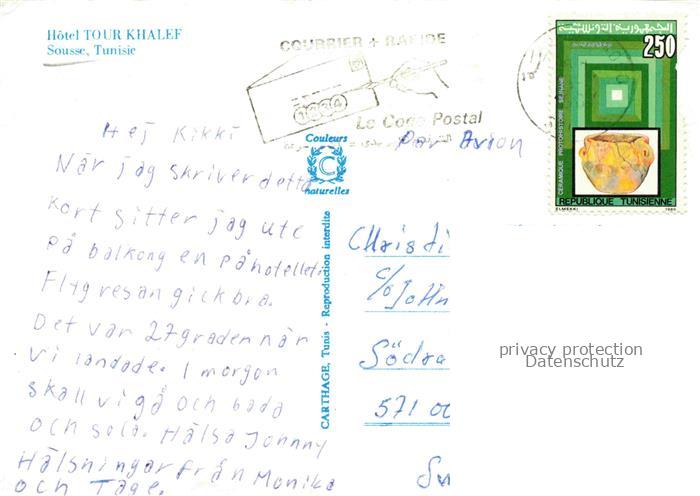 Hôtel TOUR KHALEF
Sousse, Tunisie
COURRIER + RAPIDE
1234
Le Code Postal
الجمهورية التونسية
250
CERAMIQUE PROTOHISTOIRE SEJNANE
REPUBLIQUE TUNISIENNE
ELMEKKI
Couleurs
C
naturelles
CARTHAGE, Tunis - Reproduction interdite
Hej Kikki
När jag skriver detta
kort sitter jag ute
på balkongen på hotellet.
Flygresan gick bra.
Det var 27 graden när
vi landade. I morgon
skall vi gå och bada
och sola. Hälsa Johnny
Hälsningar från Monika
och Tage.
Par Avion
Christi
c/o John
Södra
571 00
Sw
privacy protection
Datenschutz